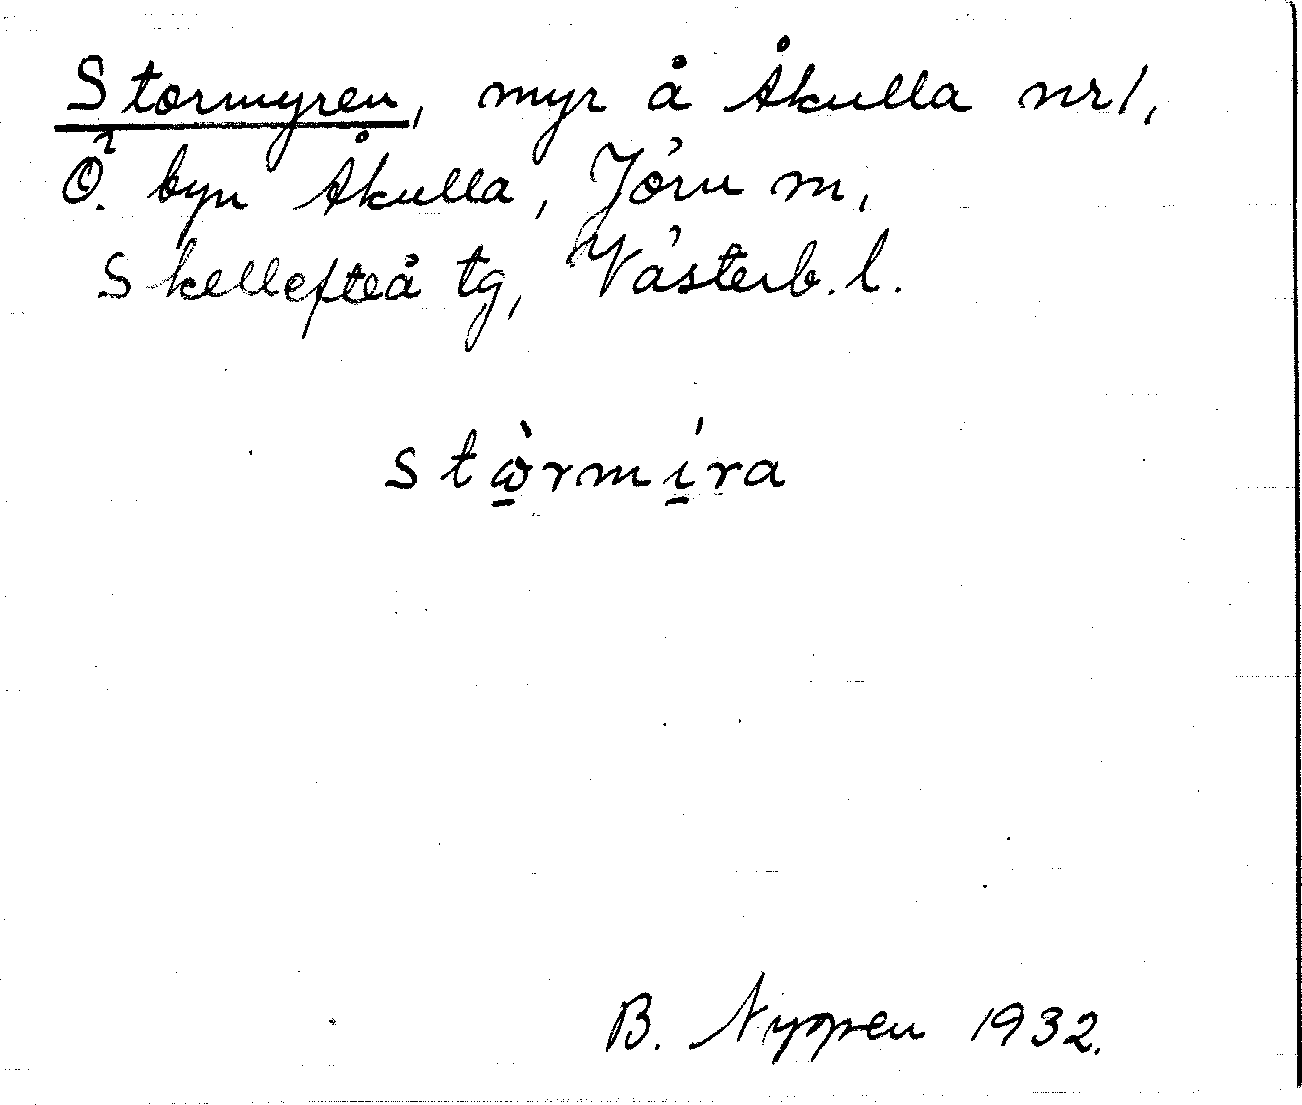 Stormyren, myr å Åkulla nr 1,
Ö. byn Åkulla, Jörn sn,
Skellefteå tg, Västerb. l.
stὼ̱rmí̱ra
B. Nyppen 1932.